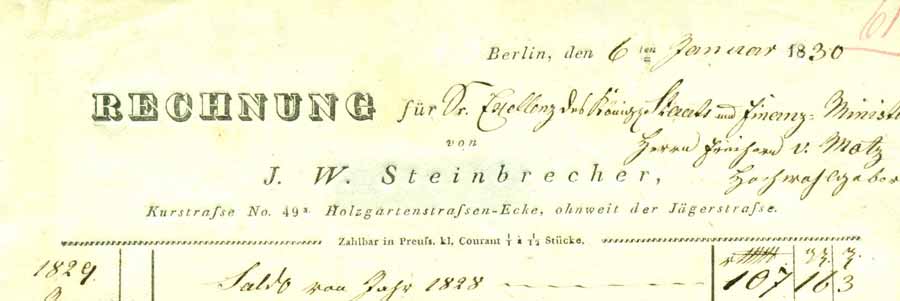 61
Berlin, den 6ten Januar 1830
RECHNUNG für Sr. Excellenz des Königl. Staats und Finanz-Minist
von Herrn Freiherrn v. Motz
J. W. Steinbrecher, Hochwohlgebor
Kurstraſse No. 49ª. Holzgartenstraſsen-Ecke, ohnweit der Jägerstraſse.
Zahlbar in Preuſs. kl. Courant 1/1 à 1/12 Stücke.
1829.
Saldo von Jahr 1828 107 16 3